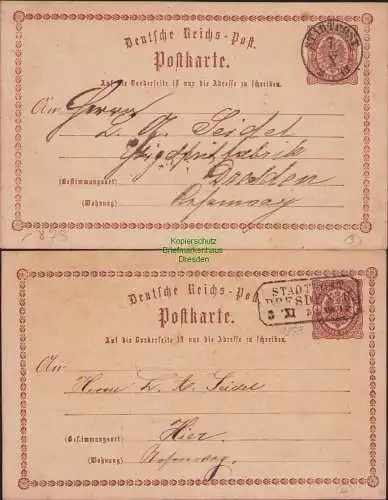 Deutsche Reichs-Post.
STADTPOST
Postkarte.
Auf die Vorderseite ist nur die Adresse zu schreiben.
An Herrn
L. A. Seidel
(Bestimmungsort) Dresden
(Wohnung)
1873
Kopierschutz
Briefmarkenhaus
Dresden
Deutsche Reichs-Post.
STADTPOST
DRESDEN
3 XI
Postkarte.
Auf die Vorderseite ist nur die Adresse zu schreiben.
An
Herrn L. A. Seidel
(Bestimmungsort) Hier
(Wohnung)